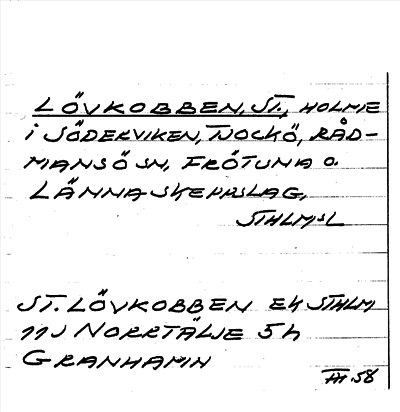 LÖVKOBBEN, ST., HOLME
i SÖDERVIKEN, NOCKÖ, RÅD-
MANSÖ SN, FRÖTUNA o.
LÄNNA SKEPPSLAG,
STHLMSL
ST. LÖVKOBBEN EK STHLM
11J NORRTÄLJE 5h
GRANHAMN
58